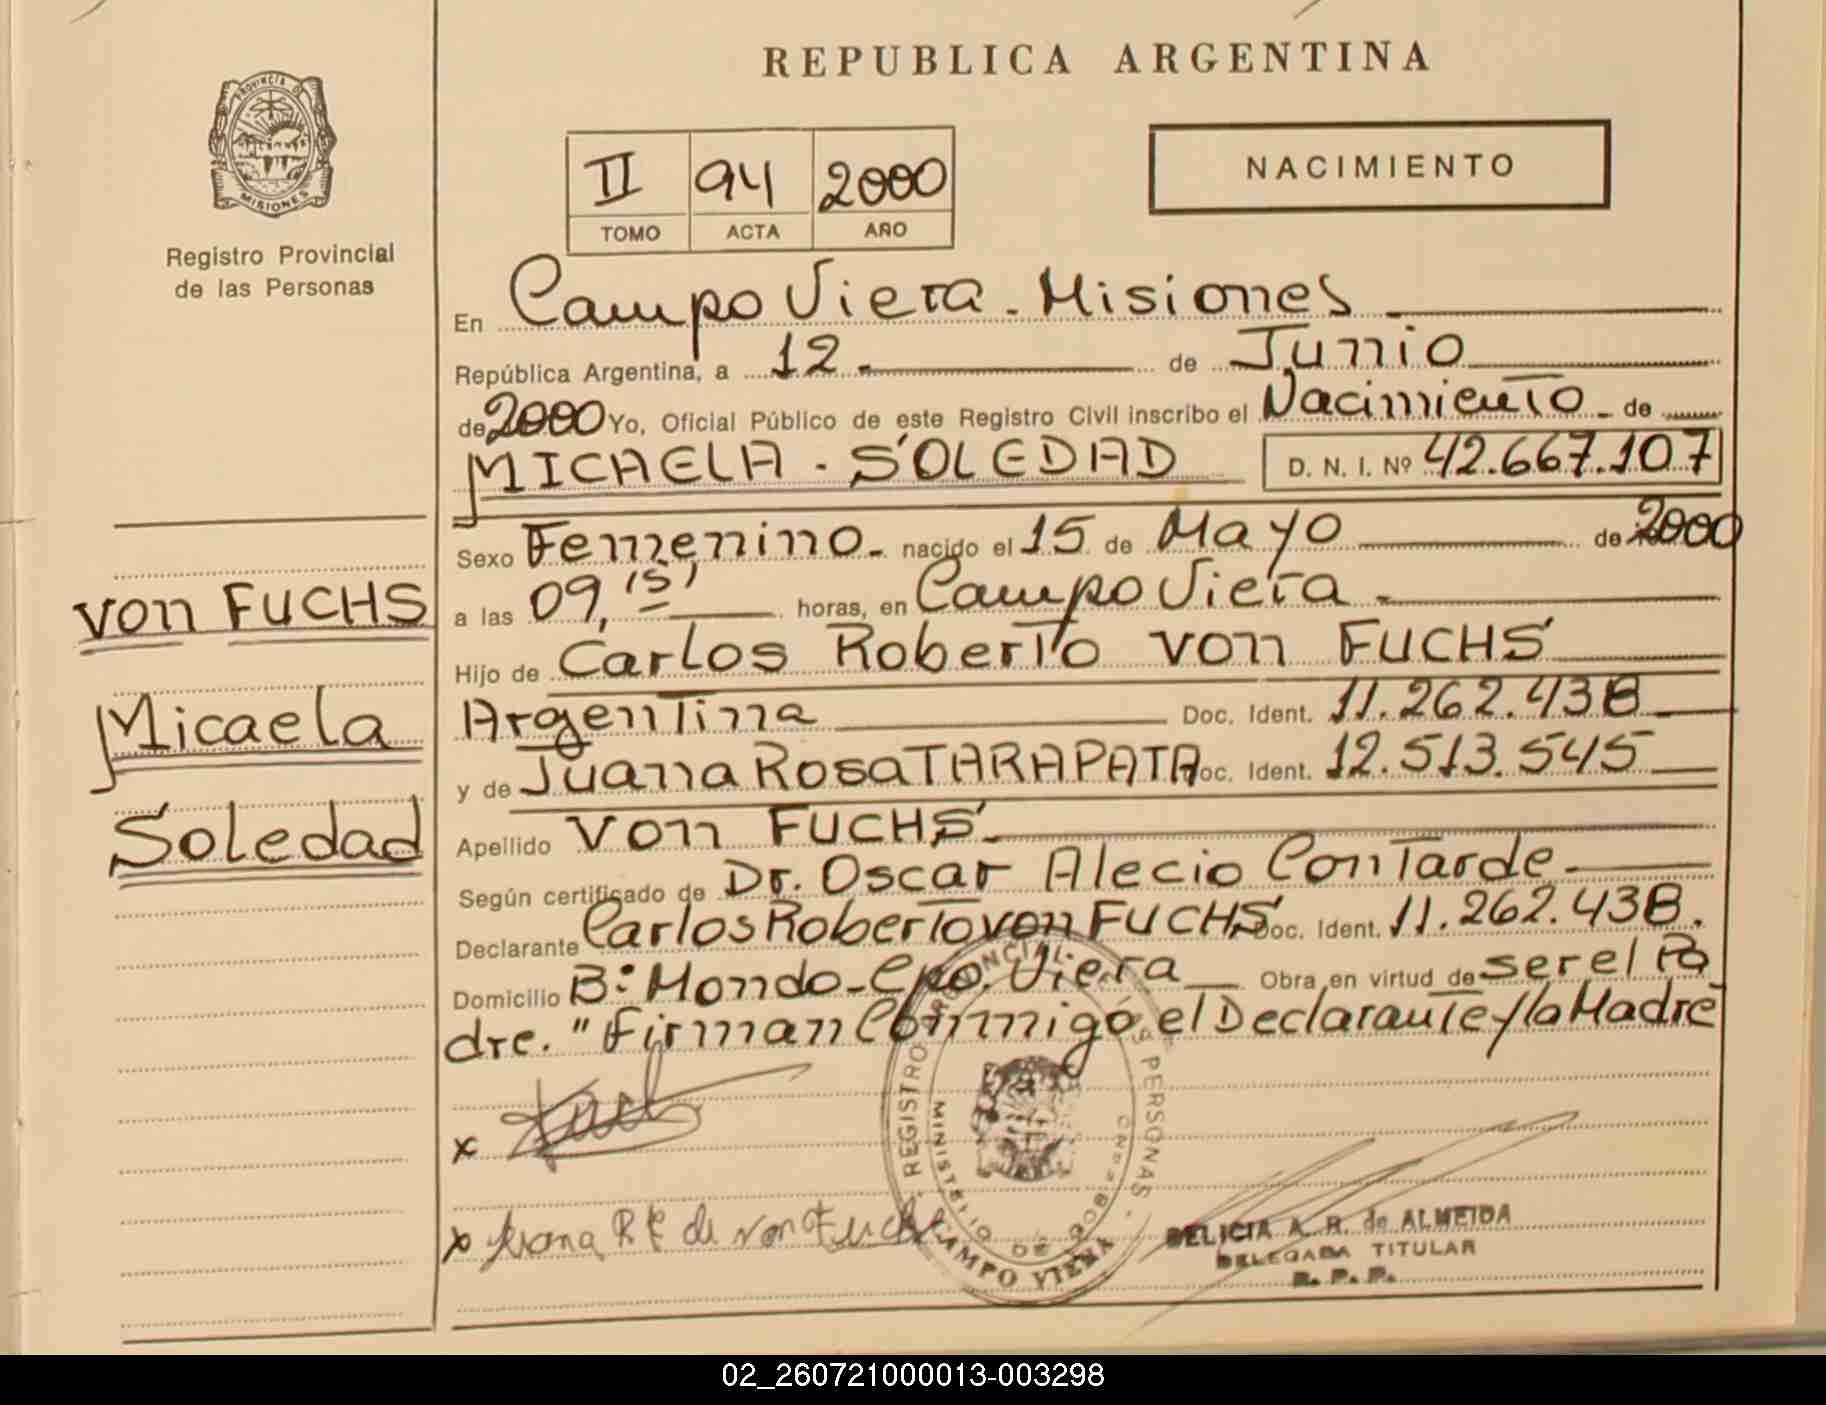 REPUBLICA ARGENTINA
PROVINCIA DE
MISIONES
Registro Provincial
de las Personas
II 94 2000
TOMO ACTA AÑO
NACIMIENTO
En Campo Viera - Misiones
República Argentina, a 12 de Junio
de 2000 Yo, Oficial Público de este Registro Civil inscribo el Nacimiento de
MICAELA - SOLEDAD D. N. I. Nº 42.667.107
Sexo Femenino nacido el 15 de Mayo de 2000
a las 09,15' horas, en Campo Viera
Hijo de Carlos Roberto von FUCHS
Argentina Doc. Ident. 11.262.438
y de Juana Rosa TARAPATA Doc. Ident. 12.513.545
Apellido von FUCHS
Según certificado de Dr. Oscar Alecio Contarde
Declarante Carlos Roberto von FUCHS Doc. Ident. 11.262.438.
Domicilio Bº Mondo - Cpo. Viera Obra en virtud de ser el Pa
dre. " Firman Conmigo el Declarante y la Madre
von FUCHS
Micaela
Soledad
x Fuch
x Juana R de von Fuchs
REGISTRO PROVINCIAL DE LAS PERSONAS
MINISTERIO DE GOB
CAMPO VIERA
DELICIA A. R. de ALMEIDA
DELEGADA TITULAR
R. P. P.
02_260721000013-003298